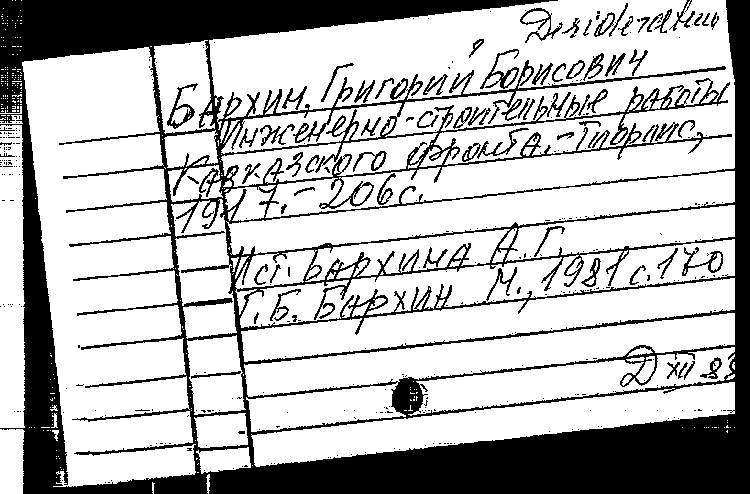 Desideratum
Бархин, Григорий Борисович
Инженерно-строительные работы
Кавказского фронта.-Тифлис,
1917.-206с.
Ист. Бархина А.Г.
Г.Б. Бархин М., 1981 с.170
Д XII 83